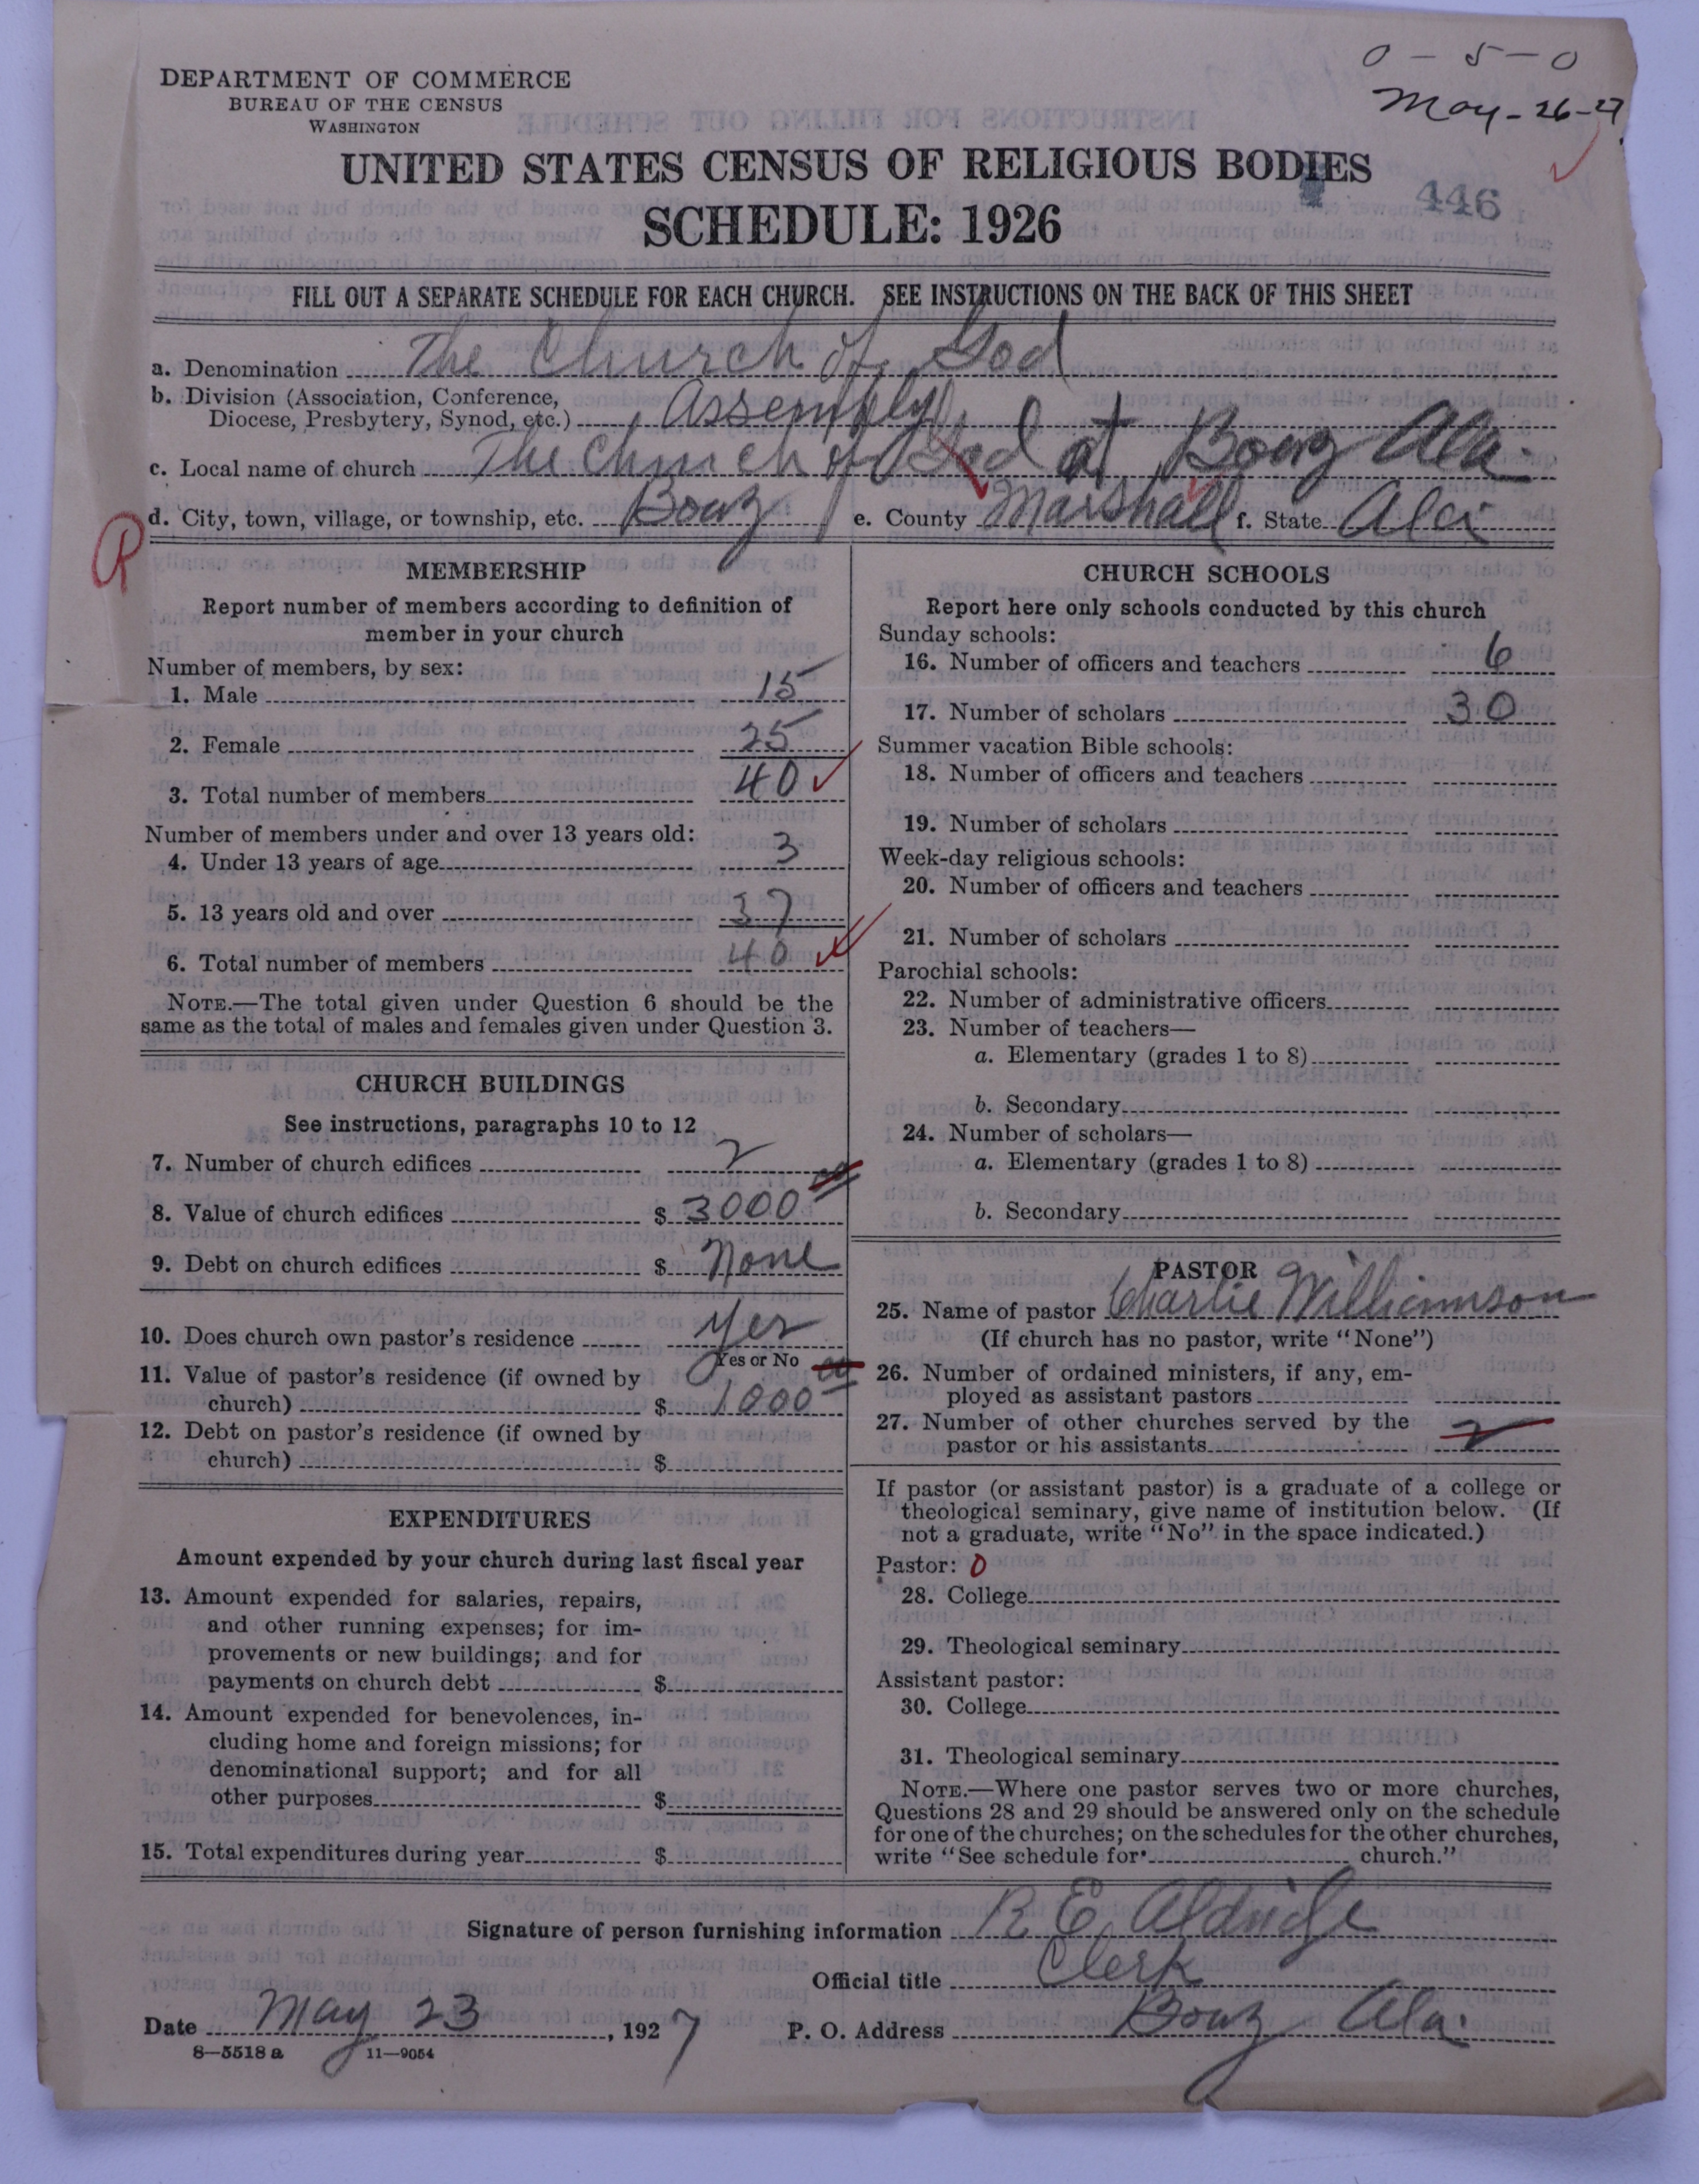 0 - 5 - 0
May - 26 - 27
DEPARTMENT OF COMMERCE
BUREAU OF THE CENSUS
WASHINGTON
UNITED STATES CENSUS OF RELIGIOUS BODIES
446
SCHEDULE: 1926
FILL OUT A SEPARATE SCHEDULE FOR EACH CHURCH. SEE INSTRUCTIONS ON THE BACK OF THIS SHEET
a. Denomination The Church of God
b. Division (Association, Conference,
Diocese, Presbytery, Synod, etc.) Assembly
c. Local name of church The Church of God at Boaz Ala.
d. City, town, village, or township, etc. Boaz e. County Marshall f. State Ala
R
MEMBERSHIP
Report number of members according to definition of
member in your church
Number of members, by sex:
1. Male 15
2. Female 25
3. Total number of members 40
Number of members under and over 13 years old:
4. Under 13 years of age 3
5. 13 years old and over 37
6. Total number of members 40
NOTE.—The total given under Question 6 should be the
same as the total of males and females given under Question 3.
CHURCH BUILDINGS
See instructions, paragraphs 10 to 12
7. Number of church edifices 2
8. Value of church edifices $ 3000 00
9. Debt on church edifices $ None
10. Does church own pastor's residence Yes
Yes or No
11. Value of pastor's residence (if owned by
church) $ 1000 00
12. Debt on pastor's residence (if owned by
church) $
EXPENDITURES
Amount expended by your church during last fiscal year
13. Amount expended for salaries, repairs,
and other running expenses; for im-
provements or new buildings; and for
payments on church debt $
14. Amount expended for benevolences, in-
cluding home and foreign missions; for
denominational support; and for all
other purposes $
15. Total expenditures during year $
CHURCH SCHOOLS
Report here only schools conducted by this church
Sunday schools:
16. Number of officers and teachers 6
17. Number of scholars 30
Summer vacation Bible schools:
18. Number of officers and teachers
19. Number of scholars
Week-day religious schools:
20. Number of officers and teachers
21. Number of scholars
Parochial schools:
22. Number of administrative officers
23. Number of teachers—
a. Elementary (grades 1 to 8)
b. Secondary
24. Number of scholars—
a. Elementary (grades 1 to 8)
b. Secondary
PASTOR
25. Name of pastor Charlie Williamson
(If church has no pastor, write "None")
26. Number of ordained ministers, if any, em-
ployed as assistant pastors
27. Number of other churches served by the
pastor or his assistants 2
If pastor (or assistant pastor) is a graduate of a college or
theological seminary, give name of institution below. (If
not a graduate, write "No" in the space indicated.)
Pastor: 0
28. College
29. Theological seminary
Assistant pastor:
30. College
31. Theological seminary
NOTE.—Where one pastor serves two or more churches,
Questions 28 and 29 should be answered only on the schedule
for one of the churches; on the schedules for the other churches,
write "See schedule for church."
Signature of person furnishing information R E Aldridge
Official title Clerk
Date May 23, 1927 P. O. Address Boaz Ala.
8—5518 a 11—9054